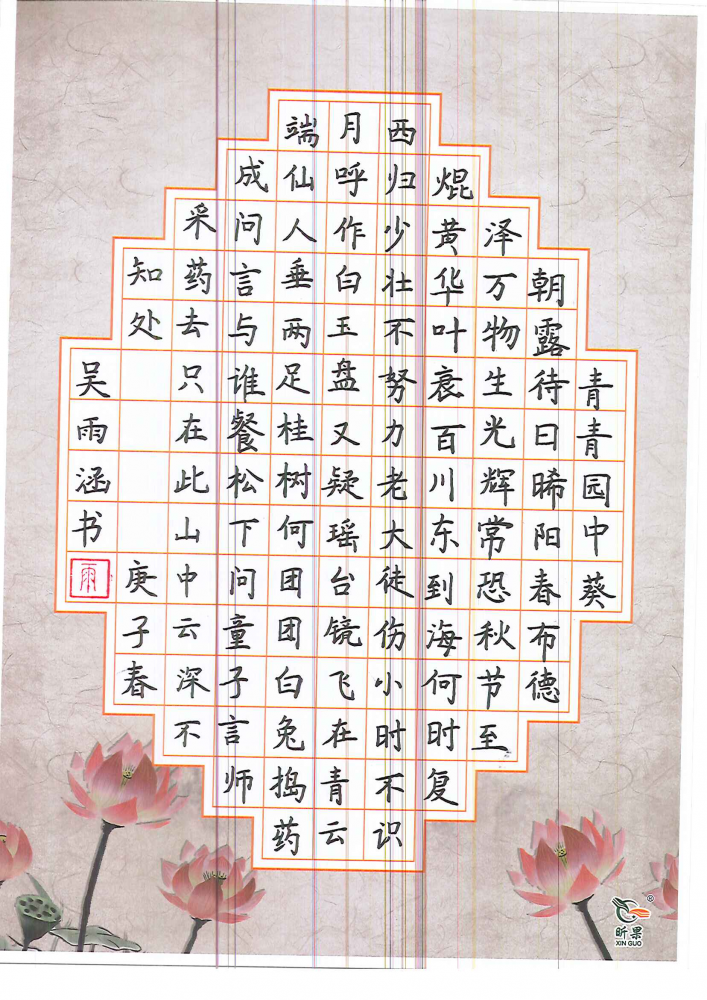 青青园中葵
朝露待日晞阳春布德
泽万物生光辉常恐秋节至
焜黄华叶衰百川东到海何时复
西归少壮不努力老大徒伤小时不识
月呼作白玉盘又疑瑶台镜飞在青云
端仙人垂两足桂树何团团白兔捣药
成问言与谁餐松下问童子言师
采药去只在此山中云深不
知处 庚子春
吴雨涵书
雨
昕果®
XIN GUO